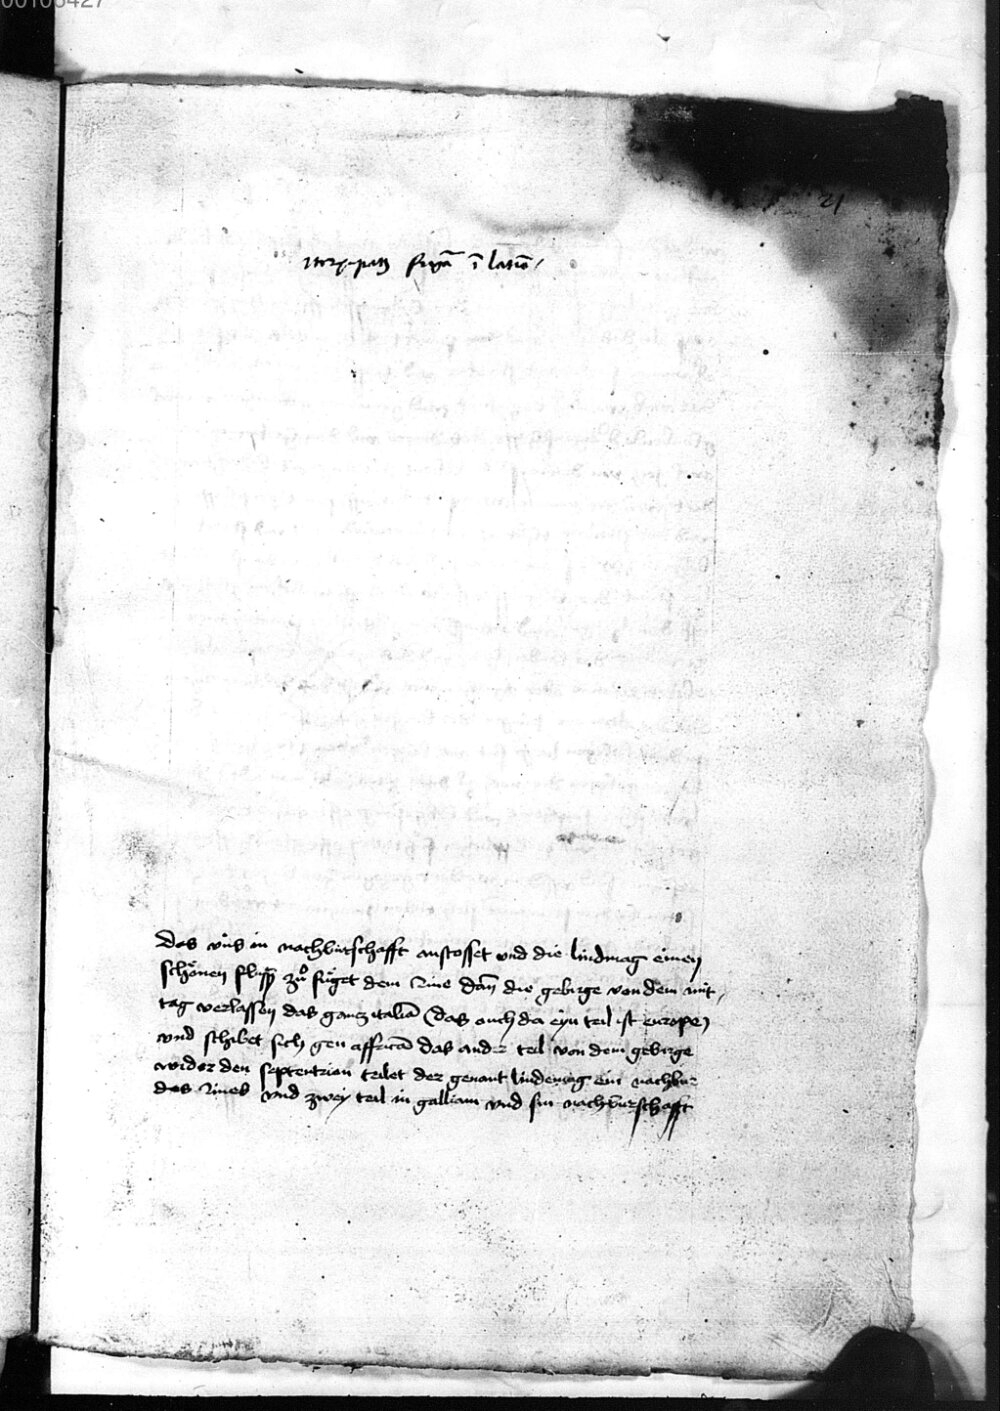 00106427
21
figura in latino
das vns in nachburschafft anstosset vnd die lindmag einen
schönen fluss zuͦ fuͤget dem Rine dan̄ die gebirge von dem mit,
tag verlassen das gantz italiā (das ouch da eyn teil ist europe)
vnd schibet sich gen affricā das ander teil von dem gebirge
wider den septentrion teilet der genant lindemag ein nachbur
des Rines vnd zwey teil in galliam vnd sin nachburschafft